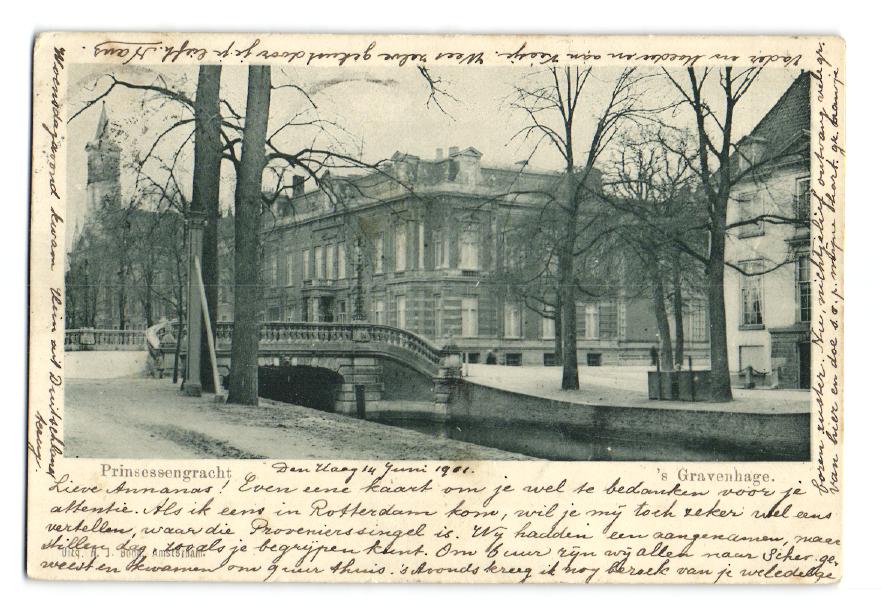 Prinsessengracht
's Gravenhage.
Den Haag 14 Juni 1901.
Lieve Annanas! Even eene kaart om je wel te bedanken voor je
attentie. Als ik eens in Rotterdam kom, wil je mij toch zeker wel eens
vertellen, waar die Provenierssingel is. Wij hadden een aangenamen, maar
stillen dag zooals je begrijpen kunt. Om 6 uur zijn wij allen naar Schev. ge-
weest en kwamen om 9 uur thuis. 's Avonds kreeg ik nog bezoek van je weledelge
Uitg. A. J. Amsterdam.
boren zuster. Nu, nichtjelief ontvang vele gr.
van hier en doe s.v.p. mijne kaart. ge
Vader en Moeder en aan Keesje. Wees zelve gekust door je je liefh. Hans
Woensdagavond kwam Wim uit Duitschland
terug